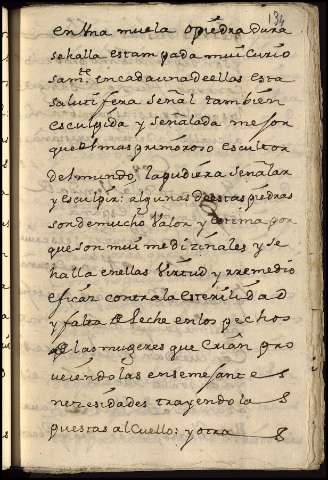 134
en Una muela o piedra dura
se halla estampada mui curio
sam.te en cada una de ellas esta
salutifera señal tambien
esculpida y señalada mejor
que el mas primoroso escultor
del mundo, la pudiera señalar
y esculpir: algunas de estas piedras
son de mucho Valor y estima por
que son mui medizinales y se
halla en ellas Virtud y rremedio
eficaz contra la esterilidad
y falta de leche en los pechos
de las mugeres que crian pro
veiendolas en semejante
nezesidades trayendola
puestas al Cuello: y otra